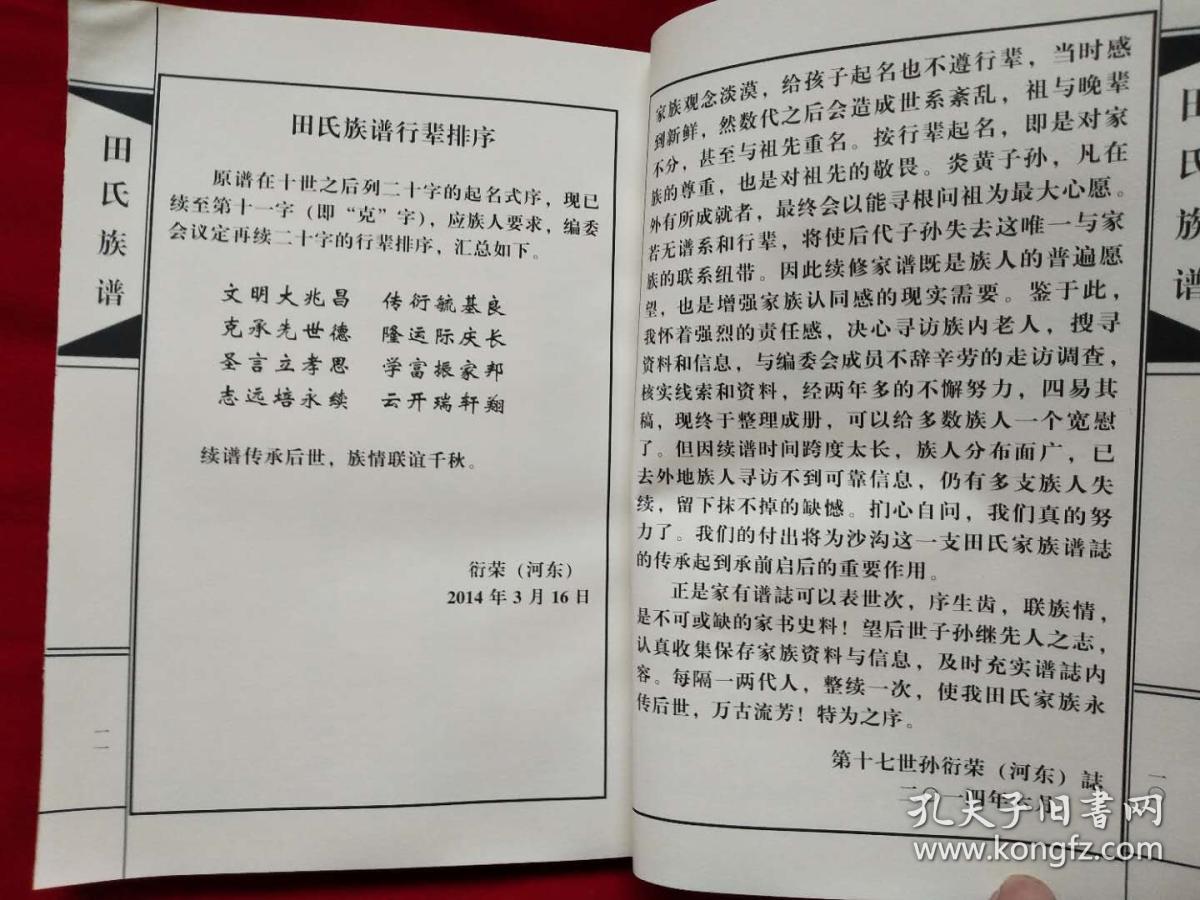 田氏族谱
一一
田氏族谱行辈排序
原谱在十世之后列二十字的起名式序，现已
续至第十一字（即“克”字），应族人要求，编委
会议定再续二十字的行辈排序，汇总如下。
文明大兆昌 传衍毓基良
克承先世德 隆运际庆长
圣言立孝思 学富振家邦
志远培永续 云开瑞轩翔
续谱传承后世，族情联谊千秋。
衍荣（河东）
2014年3月16日
家族观念淡漠，给孩子起名也不遵行辈，当时感
到新鲜，然数代之后会造成世系紊乱，祖与晚辈
不分，甚至与祖先重名。按行辈起名，即是对家
族的尊重，也是对祖先的敬畏。炎黄子孙，凡在
外有所成就者，最终会以能寻根问祖为最大心愿。
若无谱系和行辈，将使后代子孙失去这唯一与家
族的联系纽带。因此续修家谱既是族人的普遍愿
望，也是增强家族认同感的现实需要。鉴于此，
我怀着强烈的责任感，决心寻访族内老人，搜寻
资料和信息，与编委会成员不辞辛劳的走访调查，
核实线索和资料，经两年多的不懈努力，四易其
稿，现终于整理成册，可以给多数族人一个宽慰
了。但因续谱时间跨度太长，族人分布面广，已
去外地族人寻访不到可靠信息，仍有多支族人失
续，留下抹不掉的缺憾。扪心自问，我们真的努
力了。我们的付出将为沙沟这一支田氏家族谱誌
的传承起到承前启后的重要作用。
正是家有谱誌可以表世次，序生齿，联族情，
是不可或缺的家书史料！望后世子孙继先人之志，
认真收集保存家族资料与信息，及时充实谱誌内
容。每隔一两代人，整续一次，使我田氏家族永
传后世，万古流芳！特为之序。
第十七世孙衍荣（河东）誌
二〇一四年
田氏族谱
一〇
孔夫子旧书网
www.kongfz.com